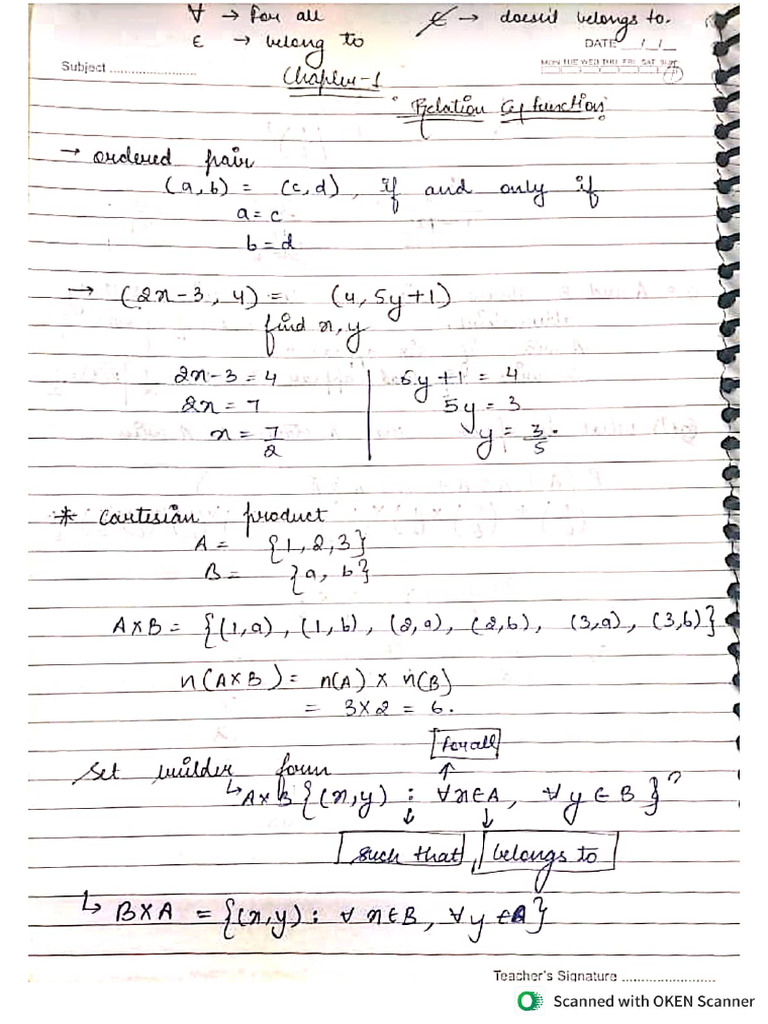 ∀ → For all ∉ → doesn't belongs to.
∈ → belong to
DATE __/_/_
Subject ........................
MON TUE WED THU FRI SAT SUN
Chapter-1
Relation & function
→ ordered pair
(a,b) = (c,d), if and only if
a=c
b=d
→ (2x-3, 4) = (4, 5y+1)
find x, y
2x-3 = 4 | 5y+1 = 4
2x = 7 | 5y = 3
x = 7/2 | y = 3/5.
* Cartesian product
A = {1, 2, 3}
B = {a, b}
A×B = {(1,a), (1,b), (2,a), (2,b), (3,a), (3,b)}
n(A×B) = n(A) × n(B)
= 3×2 = 6.
for all
Set builder form
↳ A×B {(x,y) : ∀x∈A, ∀y∈B}
such that, belongs to
↳ B×A = {(x,y) : ∀ x∈B, ∀y∈A}
Teacher's Signature ........................
Scanned with OKEN Scanner